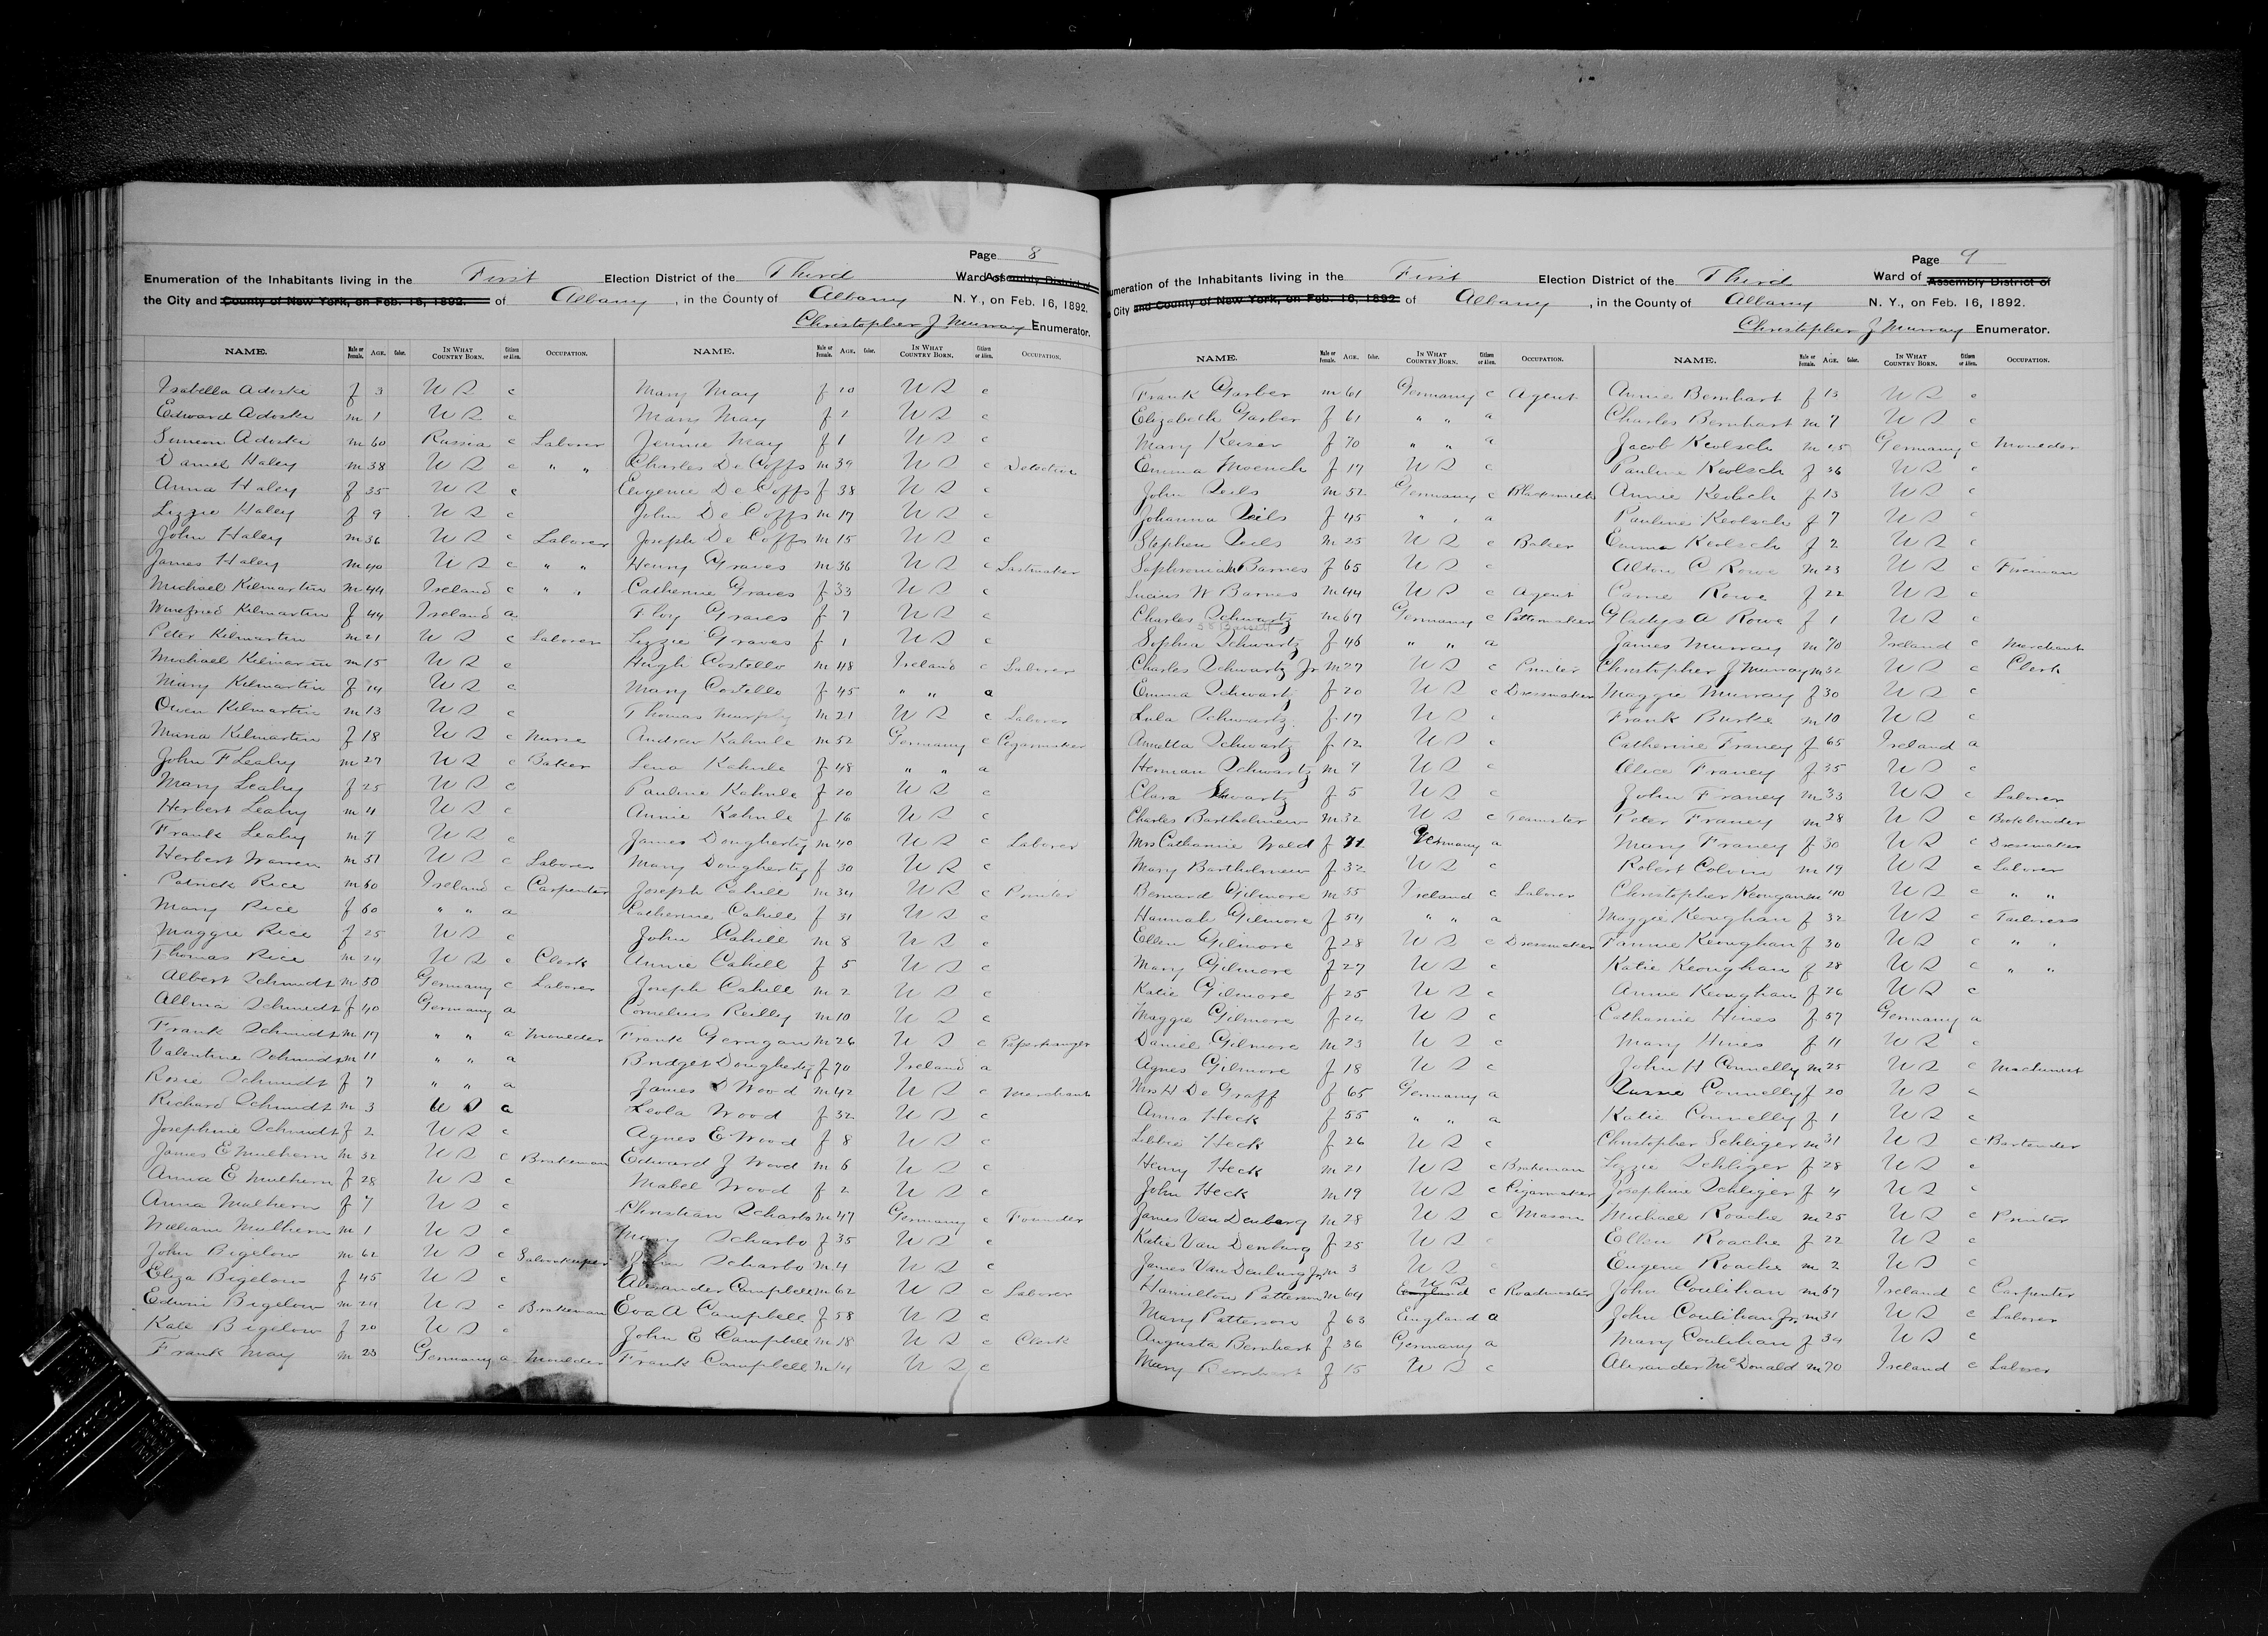 Page 8
Enumeration of the Inhabitants living in the First Election District of the Third Ward of Assembly District of
the City and County of New York, on Feb. 16, 1892. of Albany, in the County of Albany N. Y., on Feb. 16, 1892.
Christopher J Murray Enumerator.
NAME. Male or Female. AGE. Color. IN WHAT COUNTRY BORN. Citizen or Alien. OCCUPATION.
Isabella Adeski f 3 U S c
Edward Adeski m 1 U S c
Simeon Adeski m 60 Russia c Laborer
Daniel Haley m 38 U S c " "
Anna Haley f 35 U S c
Lizzie Haley f 9 U S c
John Haley m 36 U S c Laborer
James Haley m 40 U S c " "
Michael Kilmartin m 44 Ireland c " "
Winefred Kilmartin f 44 Ireland a
Peter Kilmartin m 21 U S c Laborer
Michael Kilmartin m 15 U S c
Mary Kilmartin f 14 U S c
Owen Kilmartin m 13 U S c
Maria Kilmartin f 18 U S c Nurse
John F Leahy m 27 U S c Baker
Mary Leahy f 25 U S c
Herbert Leahy m 4 U S c
Frank Leahy m 7 U S c
Herbert Warren m 51 U S c Laborer
Patrick Rice m 60 Ireland c Carpenter
Mary Rice f 60 " " a
Maggie Rice f 25 U S c
Thomas Rice m 24 U S c Clerk
Albert Schmidt m 50 Germany c Laborer
Allina Schmidt f 40 Germany a
Frank Schmidt m 17 " " a Moulder
Valentine Schmidt m 11 " " a
Rosie Schmidt f 7 " " a
Richard Schmidt m 3 U S c
Josephine Schmidt f 2 U S c
James E Mulhern m 32 U S c Brakeman
Anna E Mulhern f 28 U S c
Anna Mulhern f 7 U S c
William Mulhern m 1 U S c
John Bigelow m 62 U S c Saloonkeeper
Eliza Bigelow f 45 U S c
Edwin Bigelow m 24 U S c Brakeman
Kate Bigelow f 20 U S c
Frank May m 23 Germany a Moulder
NAME. Male or Female. AGE. Color. IN WHAT COUNTRY BORN. Citizen or Alien. OCCUPATION.
Mary May f 20 U S c
Mary May f 2 U S c
Jennie May f 1 U S c
Charles De Coffs m 39 U S c Detective
Eugenie De Coffs f 38 U S c
John De Coffs m 17 U S c
Joseph De Coffs m 15 U S c
Henry Graves m 36 U S c Lastmaker
Catherine Graves f 33 U S c
Floy Graves f 7 U S c
Lizzie Graves f 1 U S c
Hugh Costello m 48 Ireland c Laborer
Mary Costello f 45 " " a
Thomas Murphy m 21 U S c Laborer
Andrew Kahnle m 52 Germany c Cigarmaker
Lena Kahnle f 48 " " a
Pauline Kahnle f 20 U S c
Annie Kahnle f 16 U S c
James Dougherty m 40 U S c Laborer
Mary Dougherty f 30 U S c
Joseph Cahill m 34 U S c Printer
Catherine Cahill f 31 U S c
John Cahill m 8 U S c
Annie Cahill f 5 U S c
Joseph Cahill m 2 U S c
Cornelius Reilly m 10 U S c
Frank Gerrigan m 26 U S c Paperhanger
Bridget Dougherty f 70 Ireland a
James D Wood m 42 U S c Merchant
Leola Wood f 32 U S c
Agnes E Wood f 8 U S c
Edward J Wood m 6 U S c
Mabel Wood f 2 U S c
Christian Scharbo m 47 Germany c Founder
Mary Scharbo f 35 U S c
Scharbo m 4 U S c
Alexander Campbell m 62 U S c Laborer
Eva A Campbell f 58 U S c
John E Campbell m 18 U S c Clerk
Frank Campbell m 14 U S c
Page 9
umeration of the Inhabitants living in the First Election District of the Third Ward of Assembly District of
City and County of New York, on Feb. 16, 1892 of Albany, in the County of Albany N. Y., on Feb. 16, 1892.
Christopher J Murray Enumerator.
NAME. Male or Female. AGE. Color. IN WHAT COUNTRY BORN. Citizen or Alien. OCCUPATION.
Frank Garber m 61 Germany c Agent
Elizabeth Garber f 61 " " a
Mary Keiser f 70 " " a
Emma Moench f 17 U S c
John Seils m 52 Germany c Blacksmith
Johanna Seils f 45 " " a
Stephen Seils m 25 U S c Baker
Sophroniah Barnes f 65 U S c
Lucius W Barnes m 44 U S c Agent
Charles Schwartz m 67 Germany c Patternmaker
Sophia Schwartz f 46 " " a
Charles Schwartz Jr m 27 U S c Printer
Emma Schwartz f 20 U S c Dressmaker
Lula Schwartz f 17 U S c
Annetta Schwartz f 12 U S c
Herman Schwartz m 7 U S c
Clara Schwartz f 5 U S c
Charles Bartholmew m 32 U S c Teamster
Mrs Catharine Wald f 71 Germany a
Mary Bartholmew f 32 U S c
Bernard Gilmore m 55 Ireland c Laborer
Hannah Gilmore f 54 " " a
Ellen Gilmore f 28 U S c Dressmaker
Mary Gilmore f 27 U S c
Katie Gilmore f 25 U S c
Maggie Gilmore f 24 U S c
Daniel Gilmore m 23 U S c
Agnes Gilmore f 18 U S c
Mrs H De Graff f 65 Germany a
Anna Heck f 55 " " a
Libbie Heck f 26 U S c
Henry Heck m 21 U S c Brakeman
John Heck m 19 U S c Cigarmaker
James Van Denburg m 28 U S c Mason
Katie Van Denburg f 25 U S c
James Van Denburg Jr m 3 U S c
Hamilton Patterson m 64 England U S c Roadmaster
Mary Patterson f 63 England a
Augusta Bernhart f 36 Germany a
Mary Bernhart f 15 U S c
NAME. Male or Female. AGE. Color. IN WHAT COUNTRY BORN. Citizen or Alien. OCCUPATION.
Annie Bernhart f 13 U S c
Charles Bernhart m 7 U S c
Jacob Keolsch m Germany c Moulder
Pauline Keolsch f 36 U S c
Annie Keolsch f 13 U S c
Pauline Keolsch f 7 U S c
Emma Keolsch f 2 U S c
Alton C Rowe m 23 U S c Fireman
Carrie Rowe f 22 U S c
Gladys A Rowe f 1 U S c
James Murray m 70 Ireland c Merchant
Christopher J Murray m 32 U S c Clerk
Maggie Murray f 30 U S c
Frank Burke m 10 U S c
Catherine Franey f 65 Ireland a
Alice Franey f 35 U S c
John Franey m 33 U S c Laborer
Peter Franey m 28 U S c Bookbinder
Mary Franey f 30 U S c Dressmaker
Robert Colvin m 19 U S c Laborer
Christopher Keougan m 40 U S c " "
Maggie Keoughan f 32 U S c Tailoress
Fannie Keoughan f 30 U S c " "
Katie Keoughan f 28 U S c " "
Annie Keoughan f 26 U S c
Catharine Hines f 57 Germany a
Mary Hines f 11 U S c
John H Connelly m 25 U S c Machinist
Connelly f 20 U S c
Katie Connelly f 1 U S c
Christopher Schliger m 31 U S c Bartender
Lizzie Schliger f 28 U S c
Josephine Schliger f 4 U S c
Michael Roache m 25 U S c Printer
Ellen Roache f 22 U S c
Eugene Roache m 2 U S c
John Coulihan m 67 Ireland c Carpenter
John Coulihan Jr m 31 U S c Laborer
Mary Coulihan f 34 U S c
Alexander McDonald m 70 Ireland c Laborer